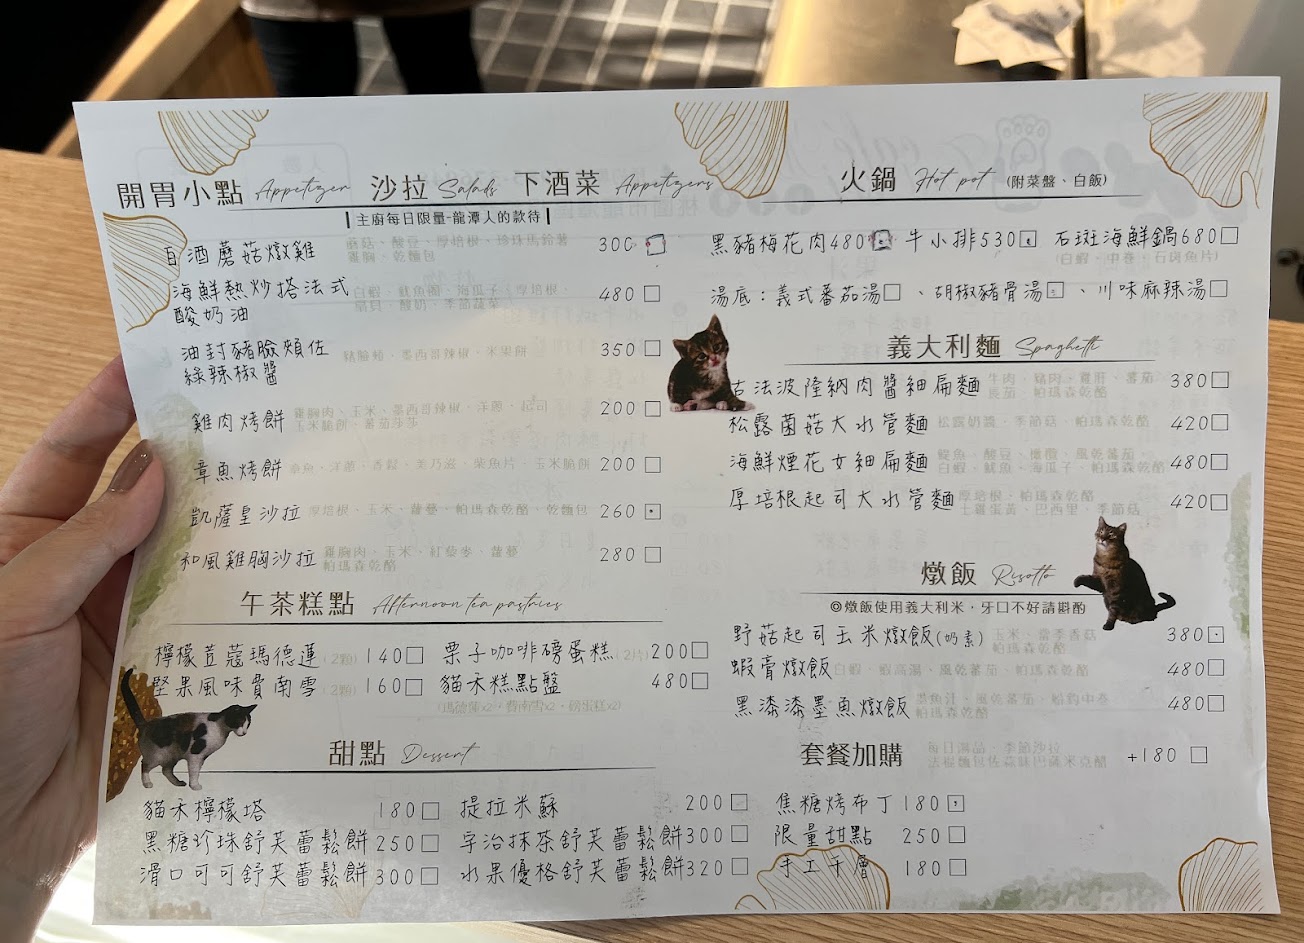 開胃小點 Appetizer 沙拉 Salads 下酒菜 Appetizers
主廚每日限量-龍潭人的款待
白酒蘑菇燉雞 蘑菇、酸豆、厚培根、珍珠馬鈴薯 300
雞胸、乾麵包
海鮮熱炒搭法式 白蝦、魷魚圈、海瓜子、厚培根、 480
酸奶油 酸奶、季節蔬菜
油封豬臉頰佐 豬臉頰、墨西哥辣椒、米果餅 350
綠辣椒醬
雞肉烤餅 雞胸肉、玉米、墨西哥辣椒、洋蔥、起司 200
玉米脆餅、蕃茄莎莎
章魚烤餅 章魚、洋蔥、香鬆、美乃滋、柴魚片、玉米脆餅 200
凱薩皇沙拉 厚培根、玉米、蘿蔓、帕瑪森乾酪、乾麵包 260
和風雞胸沙拉 雞胸肉、玉米、紅藜麥、蘿蔓 280
帕瑪森乾酪
午茶糕點 Afternoon tea pastries
檸檬荳蔻瑪德蓮 (2顆) 140 栗子咖啡磅蛋糕 (2片) 200
堅果風味費南雪 (2顆) 160 貓禾糕點盤 480
(瑪德蓮x2、費南雪x2、磅蛋糕x2)
甜點 Dessert
貓禾檸檬塔 180 提拉米蘇 200 焦糖烤布丁 180
黑糖珍珠舒芙蕾鬆餅 250 宇治抹茶舒芙蕾鬆餅 300 限量甜點 250
滑口可可舒芙蕾鬆餅 300 水果優格舒芙蕾鬆餅 320 手工千層 180
火鍋 Hot pot (附菜盤、白飯)
黑豬梅花肉 480 牛小排 530 石斑海鮮鍋 680
(白蝦、中卷、石斑魚片)
湯底：義式番茄湯 、胡椒豬骨湯 、川味麻辣湯
義大利麵 Spaghetti
古法波隆納肉醬細扁麵 牛肉、豬肉、雞肝、蕃茄 380
帕瑪森乾酪
松露菌菇大水管麵 松露奶醬、季節菇、帕瑪森乾酪 420
海鮮煙花女細扁麵 鯷魚、酸豆、橄欖、風乾蕃茄、 480
白蝦、魷魚、海瓜子、帕瑪森乾酪
厚培根起司大水管麵 厚培根、帕瑪森乾酪 420
土雞蛋黃、巴西里、季節菇
燉飯 Risotto
◎燉飯使用義大利米，牙口不好請斟酌
野菇起司玉米燉飯(奶素) 玉米、當季香菇 380
帕瑪森乾酪
蝦膏燉飯 白蝦、蝦高湯、風乾蕃茄、帕瑪森乾酪 480
黑漆漆墨魚燉飯 墨魚汁、風乾蕃茄、船釣中卷 480
帕瑪森乾酪
套餐加購 每日湯品、季節沙拉 +180
法棍麵包佐蒜味巴薩米克醋